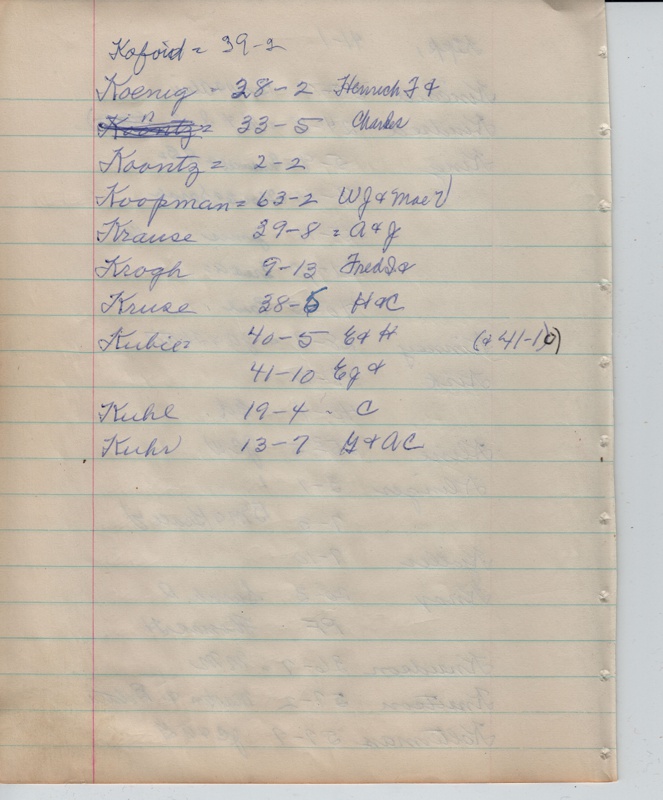 Kofoid = 39-2
Koenig - 38-2 Henrich J &
Koontz = 33-5 Charles
Koontz = 2-2
Koopman = 63-2 WJ & Mae V
Krause 39-8 = A & J
Krogh 9-13 Fred J &
Kruse 38-6 H & C
Kubie = 40-5 E & H (& 41-10)
41-10 EJ &
Kuhl 19-4 - C
Kuhr 13-7 G & AC